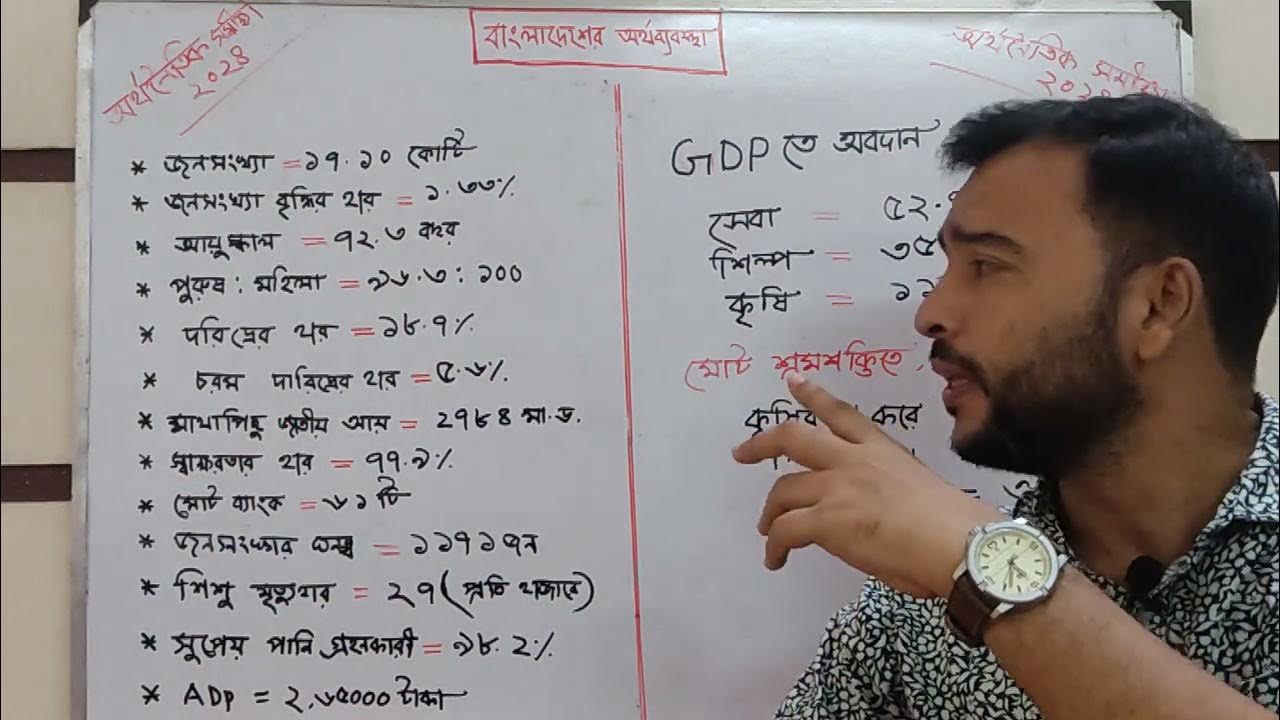 বাংলাদেশের অর্থব্যবস্থা
অর্থনৈতিক সমীক্ষা
২০২৪
অর্থনৈতিক
* জনসংখ্যা = ১৭.১০ কোটি
* জনসংখ্যা বৃদ্ধির হার = ১.৩৩%
* আয়ুষ্কাল = ৭২.৩ বছর
* পুরুষ : মহিলা = ৯৬.৩ : ১০০
* দারিদ্রের হার = ১৮.৭%
* চরম দারিদ্রের হার = ৫.৬%
* মাথাপিছু জাতীয় আয় = ২৭৮৪ মা.ড.
* স্বাক্ষরতার হার = ৭৭.৯%
* মোট ব্যাংক = ৬১ টি
* জনসংখ্যার ঘনত্ব = ১১৭১ জন
* শিশু মৃত্যুহার = ২৭ (প্রতি হাজারে)
* সুপেয় পানি গ্রহনকারী = ৯৮.২%
* ADP = ২,৬৫০০০ টাকা
GDP তে অবদান
সেবা = ৫২.
শিল্প = ৩৫
কৃষি = ১১
মোট শ্রমশক্তিতে
করে
=